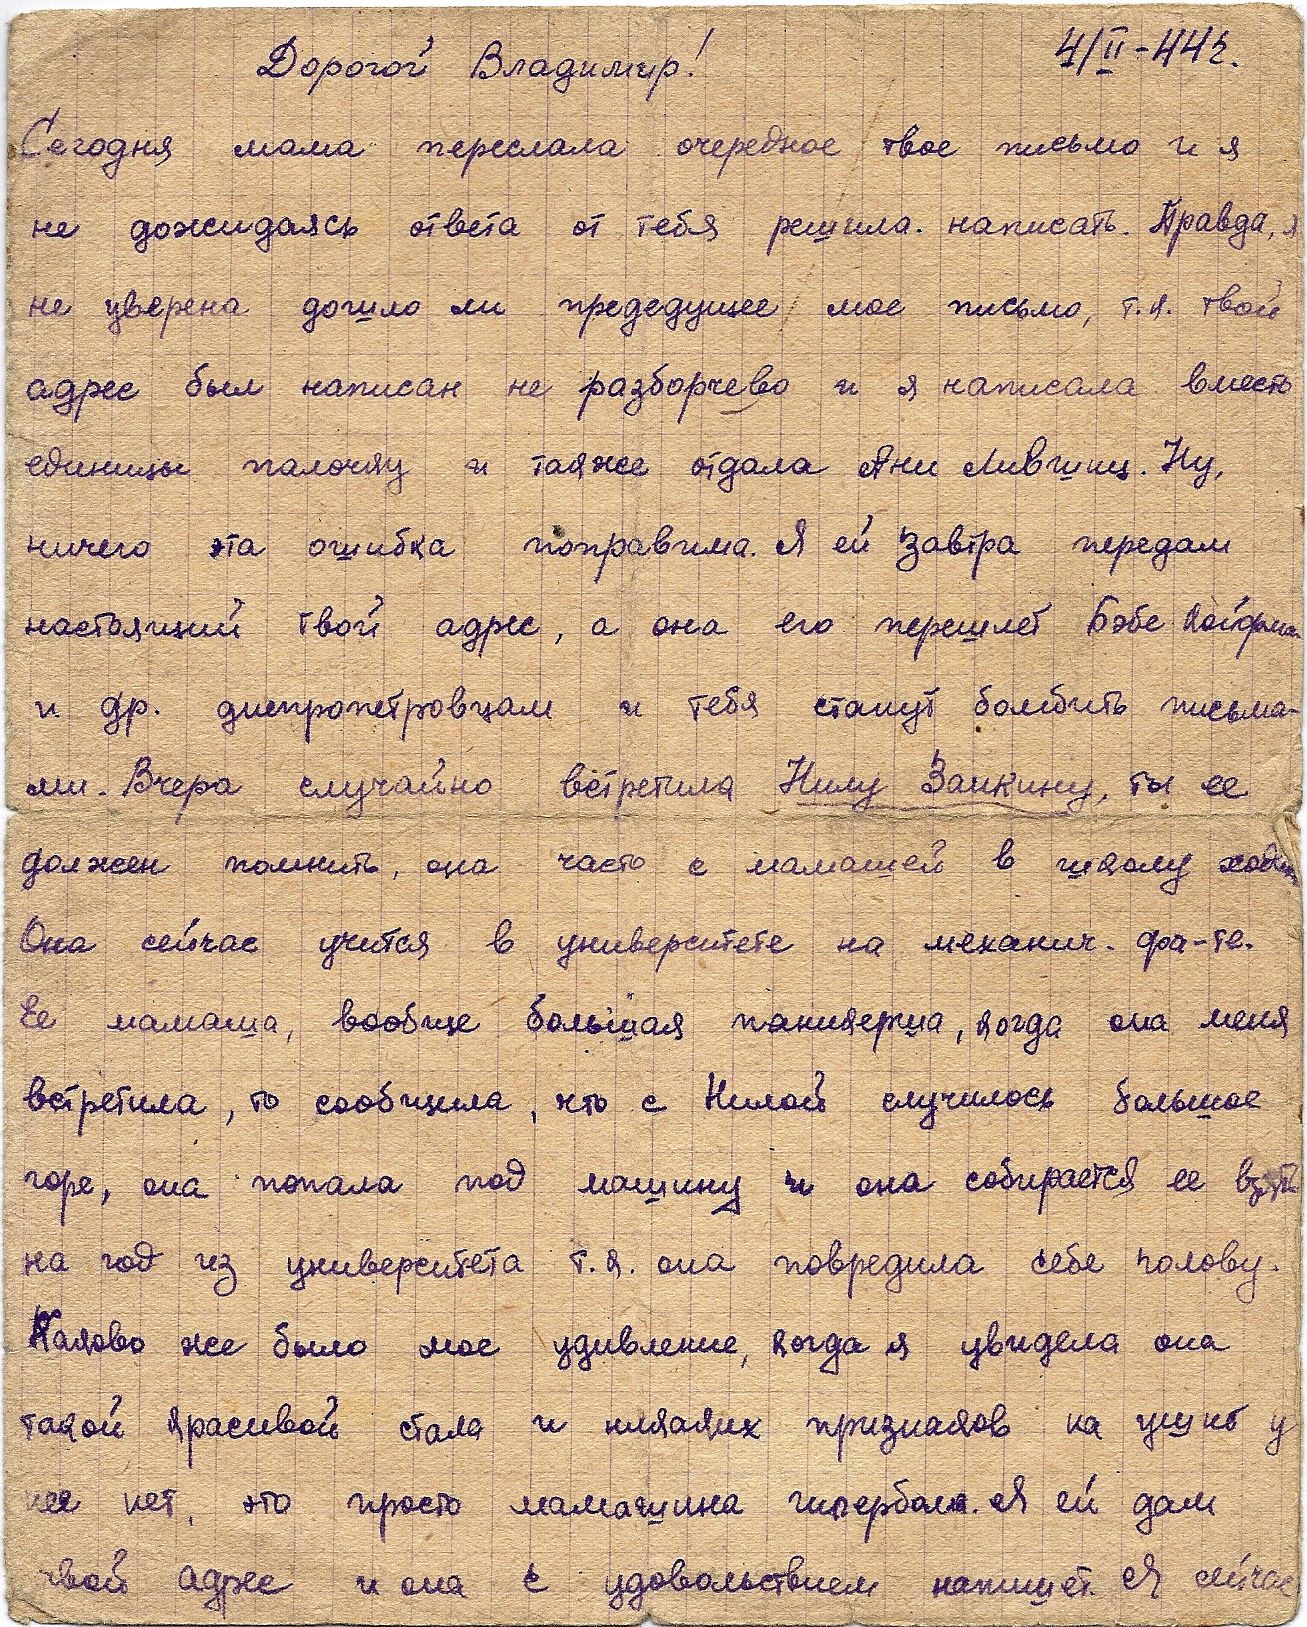 4/II-44г.
Дорогой Владимир!
Сегодня мама переслала очередное твое письмо и я
не дожидаясь ответа от тебя решила написать. Правда, я
не уверена дошло ли предедущее мое письмо, т.к. твой
адрес был написан не разборчево и я написала вместо
единицы палочку и также отдала Ани Лившиц. Ну,
ничего эта ошибка поправима. Я ей завтра передам
настоящий твой адрес, а она его перешлет Бэбе
и др. днепропетровцам и тебя станут бомбить письма-
ми. Вчера случайно встретила Нилу Заикину, ты ее
должен помнить, она часто с мамашей в школу
Она сейчас учится в университете на механич. фа-те.
Ее мамаша, вообще большая паникерша, когда она меня
встретила, то сообщила, что с Нилой случилось большое
горе, она попала под машину и она собирается ее
на год из университета т.к. она повредила себе голову.
Каково же было мое удивление, когда я увидела она
такой красивой стала и никаких признаков на ушиб у
нее нет, это просто мамашина гипербола. Я ей дам
твой адрес и она с удовольствием напишет. Я сейчас